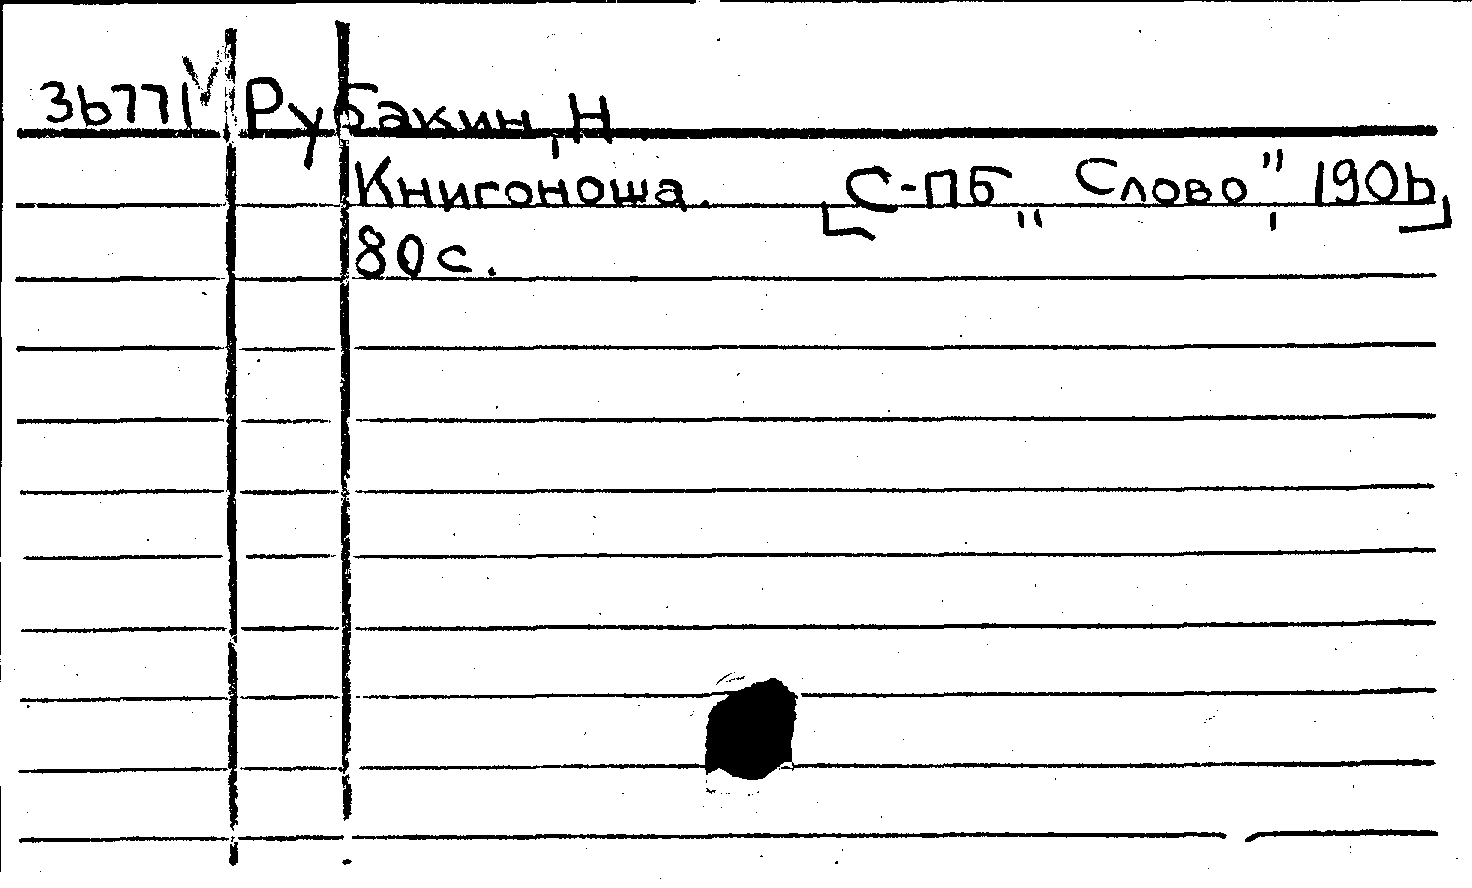 36771 Рубакин, Н
Книгоноша. [С-ПБ „Слово", 1906]
80 с.